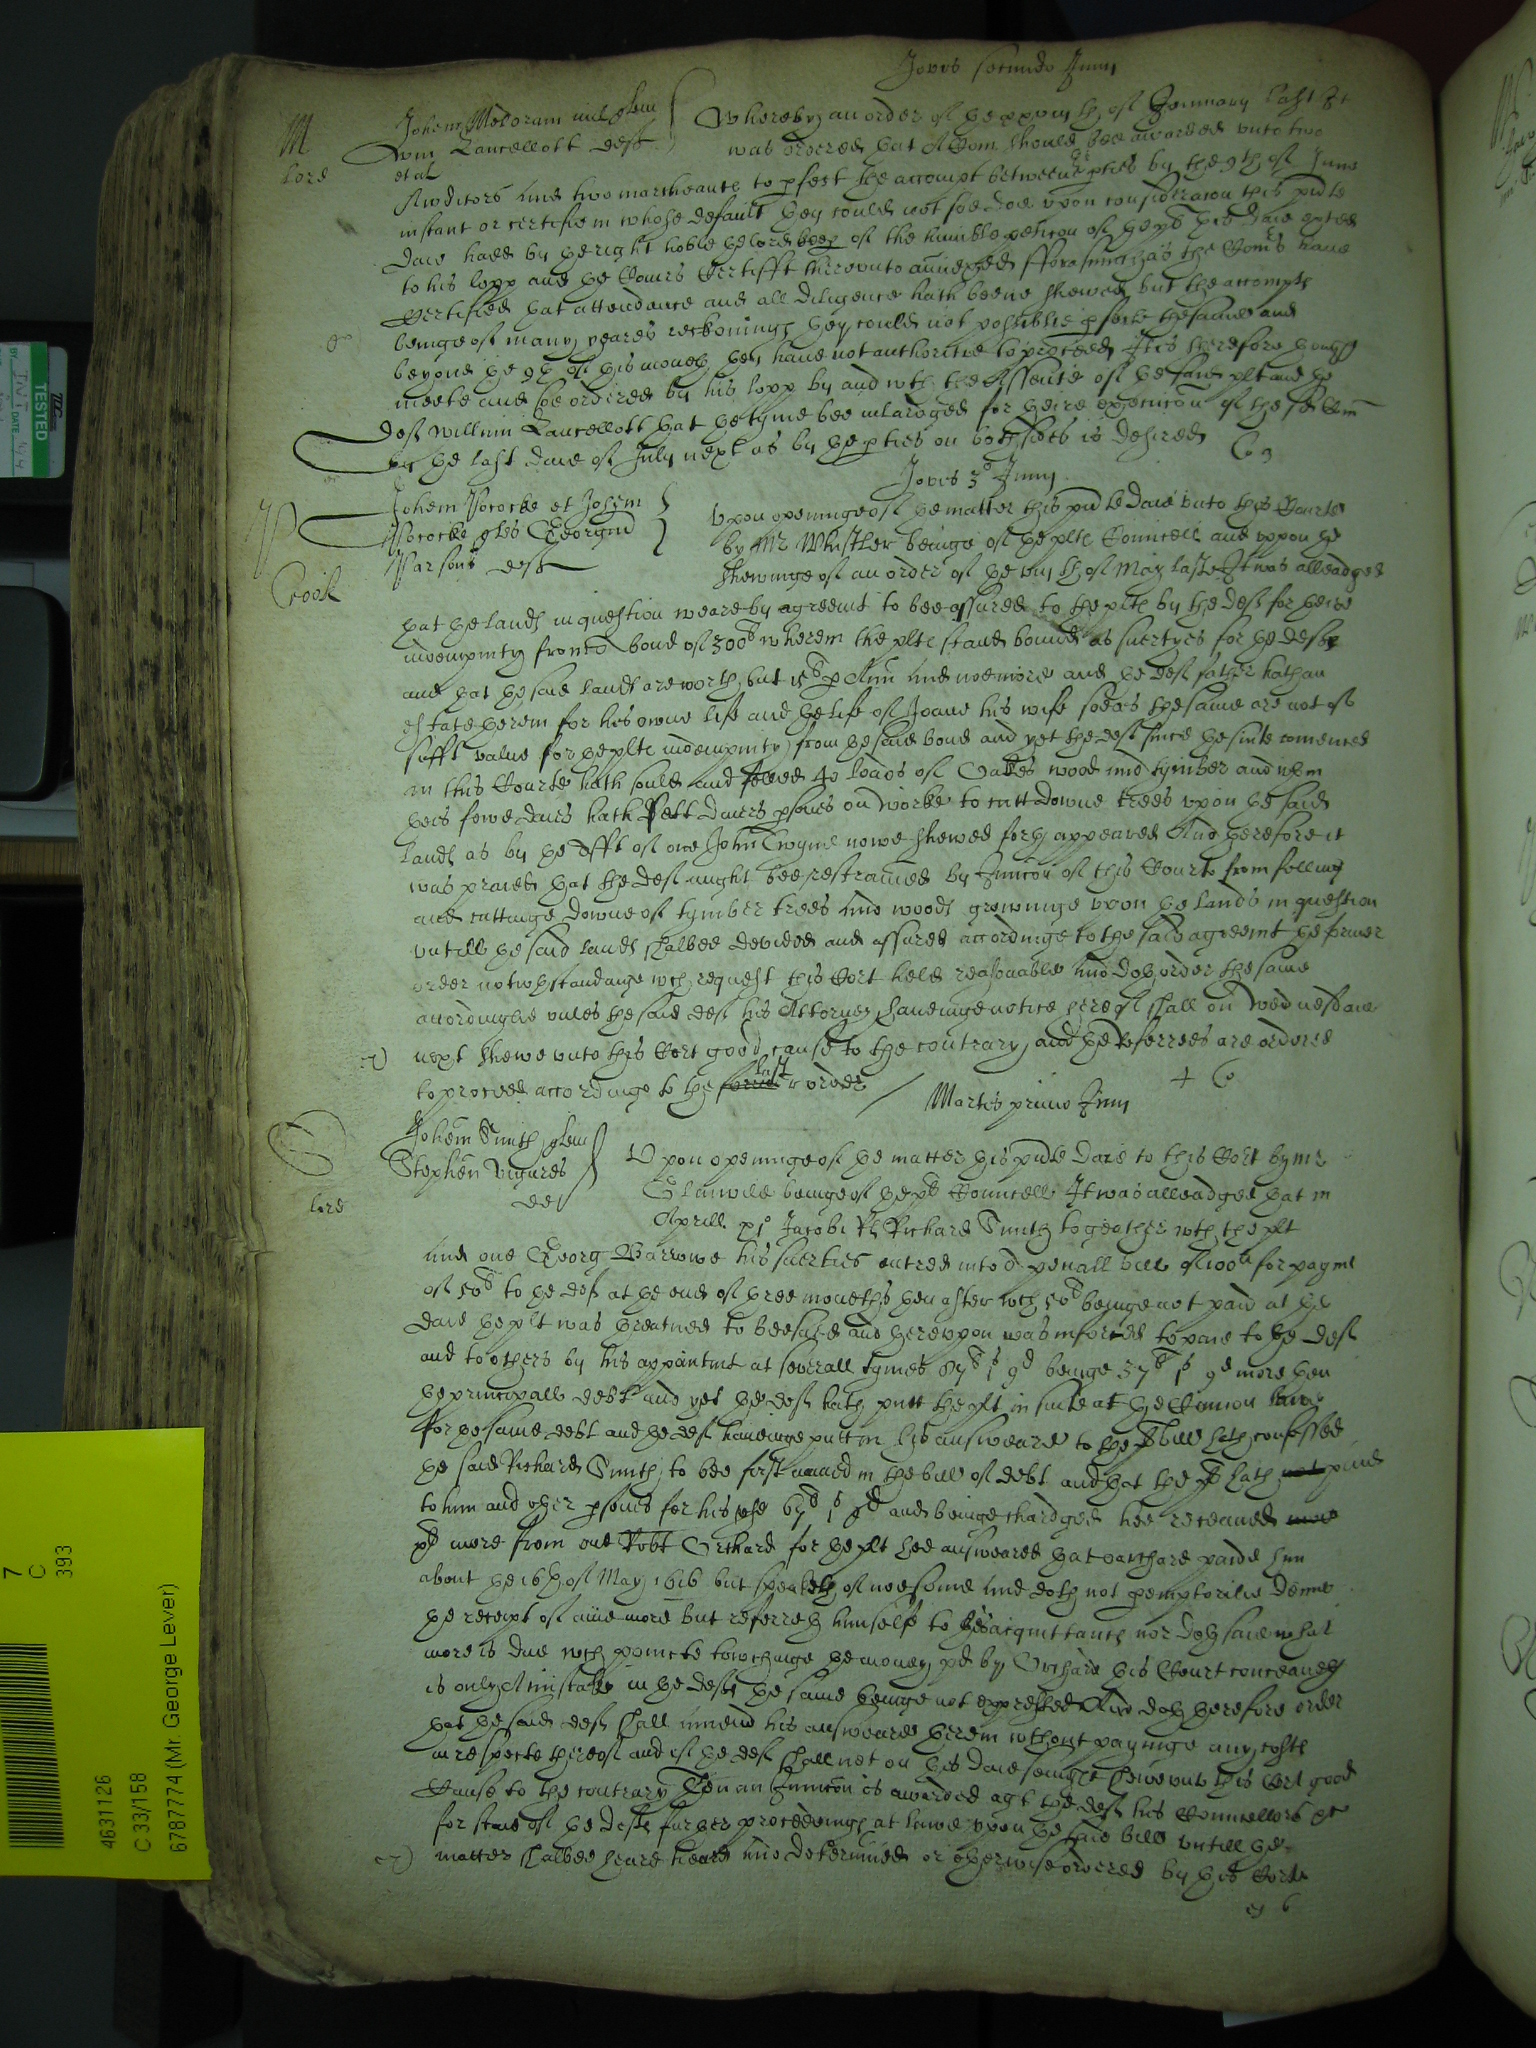 Jovis secundo Junij
M
lord
Johem Meloram mil quem
Willm Lancellott deft
et al
Whereby an order of the xxviij th of January last It
was ordered that A Com should bee awarded unto two
Auditors and two marchaunts to pfect the accompt betweene the pties by the 9th of June
instant or certifie in whose default they could not soe doe upon consideracon this pnte
daie hadd by the right hoble the lord keep of the humble peticon of the pl this daie exhited
to his lopp and the Comrs Certifft thereunto annexed fforasmuch as the Comrs have
Certified that attendance and all diligence hath beene shewed but the accompts
beinge of many yeares reckonings they could not possiblie pfecte the same and
beyond the 9th of this moneth they have not authoritie to proceed It is therefore thought
meete and soe ordered by his lopp by and wth the Assente of the said plt and the
deft Willm Lancellott that the tyme bee inlarged for theire execucon of the se Com
by the last daie of July next as by the pties on both sides is desired
Jovis 3o Junij
P
Crook
Johem Pococke et Johem
Pococke ples Georgiu
Parsons deft
Upon openinge of the matter this pnte daie unto this Courte
by Mr Whistler beinge of the plts Councell and uppon the
shewinge of an order of the viij th of May laste It was alleadged
that the lands in question weare by agreemt to bee assured to the plts by the deft for theire
indempnity from a bond of 300li wherein the plts stand bound as suertyes for the defte
and that the said lands are worth but 15li p Ann and noe more and the deft father hath an
estate therein for his owne life and the life of Joane his wife soe as the same are not of
sufft value for the plts indempnity from the said bond and yet the deft since the suite comenced
in this Courte hath sould and felled 40 loads of Oakes wood and tymber and wthin
theis fewe daies hath sett divers psones on worke to cutt downe trees upon the said
lands as by the Afft of one John nowe shewed forth appeared And therefore it
was praied that the deft might bee restrained by Iniuncon of this Courte from felling
and cuttinge downe of tymber trees and woods growinge upon the lands in question
untill the said lands shalbee devided and assured accordinge to the said agreemt the former
order notwthstandinge wch request this Cort held reasonable and doth order the same
accordinglie unles the said deft his Attorney haveinge notice hereof shall on Wednesdaie
next shewe unto this Cort good cause to the contrary and the Referrees are ordered
to proceed accordinge to the last order
Martis primo Junij
S
lord
Johem Smith quem
Stephen Vigures
def
Upon openinge of the matter this pnte daie to this Cort by Mr
Glanvile beinge of the pl Councell It was alleadged that in
Aprill xio Jacobi Rs Richard Smith togeather wth the plt
and one Georg Barrowe his suerties entred into a penall bill of 100li for paymt
of 50li to the def at the end of three moneths then after wch 50li beinge not paid at the
daie the plt was threatned to bee sued and thereuppon was inforced to paie to the deft
and to others by his appointmt at severall tymes 87li 1s 9d beinge 37li 1s 9d more then
the principall debt and yet the deft hath putt the plt in suite at the Comon lawe
for the same debt and the deft haveinge putt in his answeare to the bill hath confessed
the said Richard Smith to bee first named in the bill of debt and that the pl hath paid
to him and other psones for his use 67li 1s 9d and beinge chardged hee receaved
more from one Robt Orchard for the plt hee answeared that Oarchard paide him
about the 16th of May 1616 but speaketh of noe some and doth not pemptorilie denie
the receipt of anie more But referreth himself to his acquittance nor doth saie what
more is due wch pointe towchinge the money pd by Orchard this Court conceaveth
is only A mistake in the defte the same beinge not expressed And doth therefore order
that the said deft shall amend his answeare therein wthout payinge any costs
in respecte thereof and if the deft shall not on this daie sevnight shewe unto this Cort good
Cause to the contrary Then an Iniuncon is awarded agt the deft his Councellors &c
for staie of the defte further proceedings at lawe upon the said bill untill the
matter shalbee heard and determined or otherwise ordered by this Corte
TESTED
DATE
4631126
C 33/158
6787774 (Mr. George Lever)
7
C
393